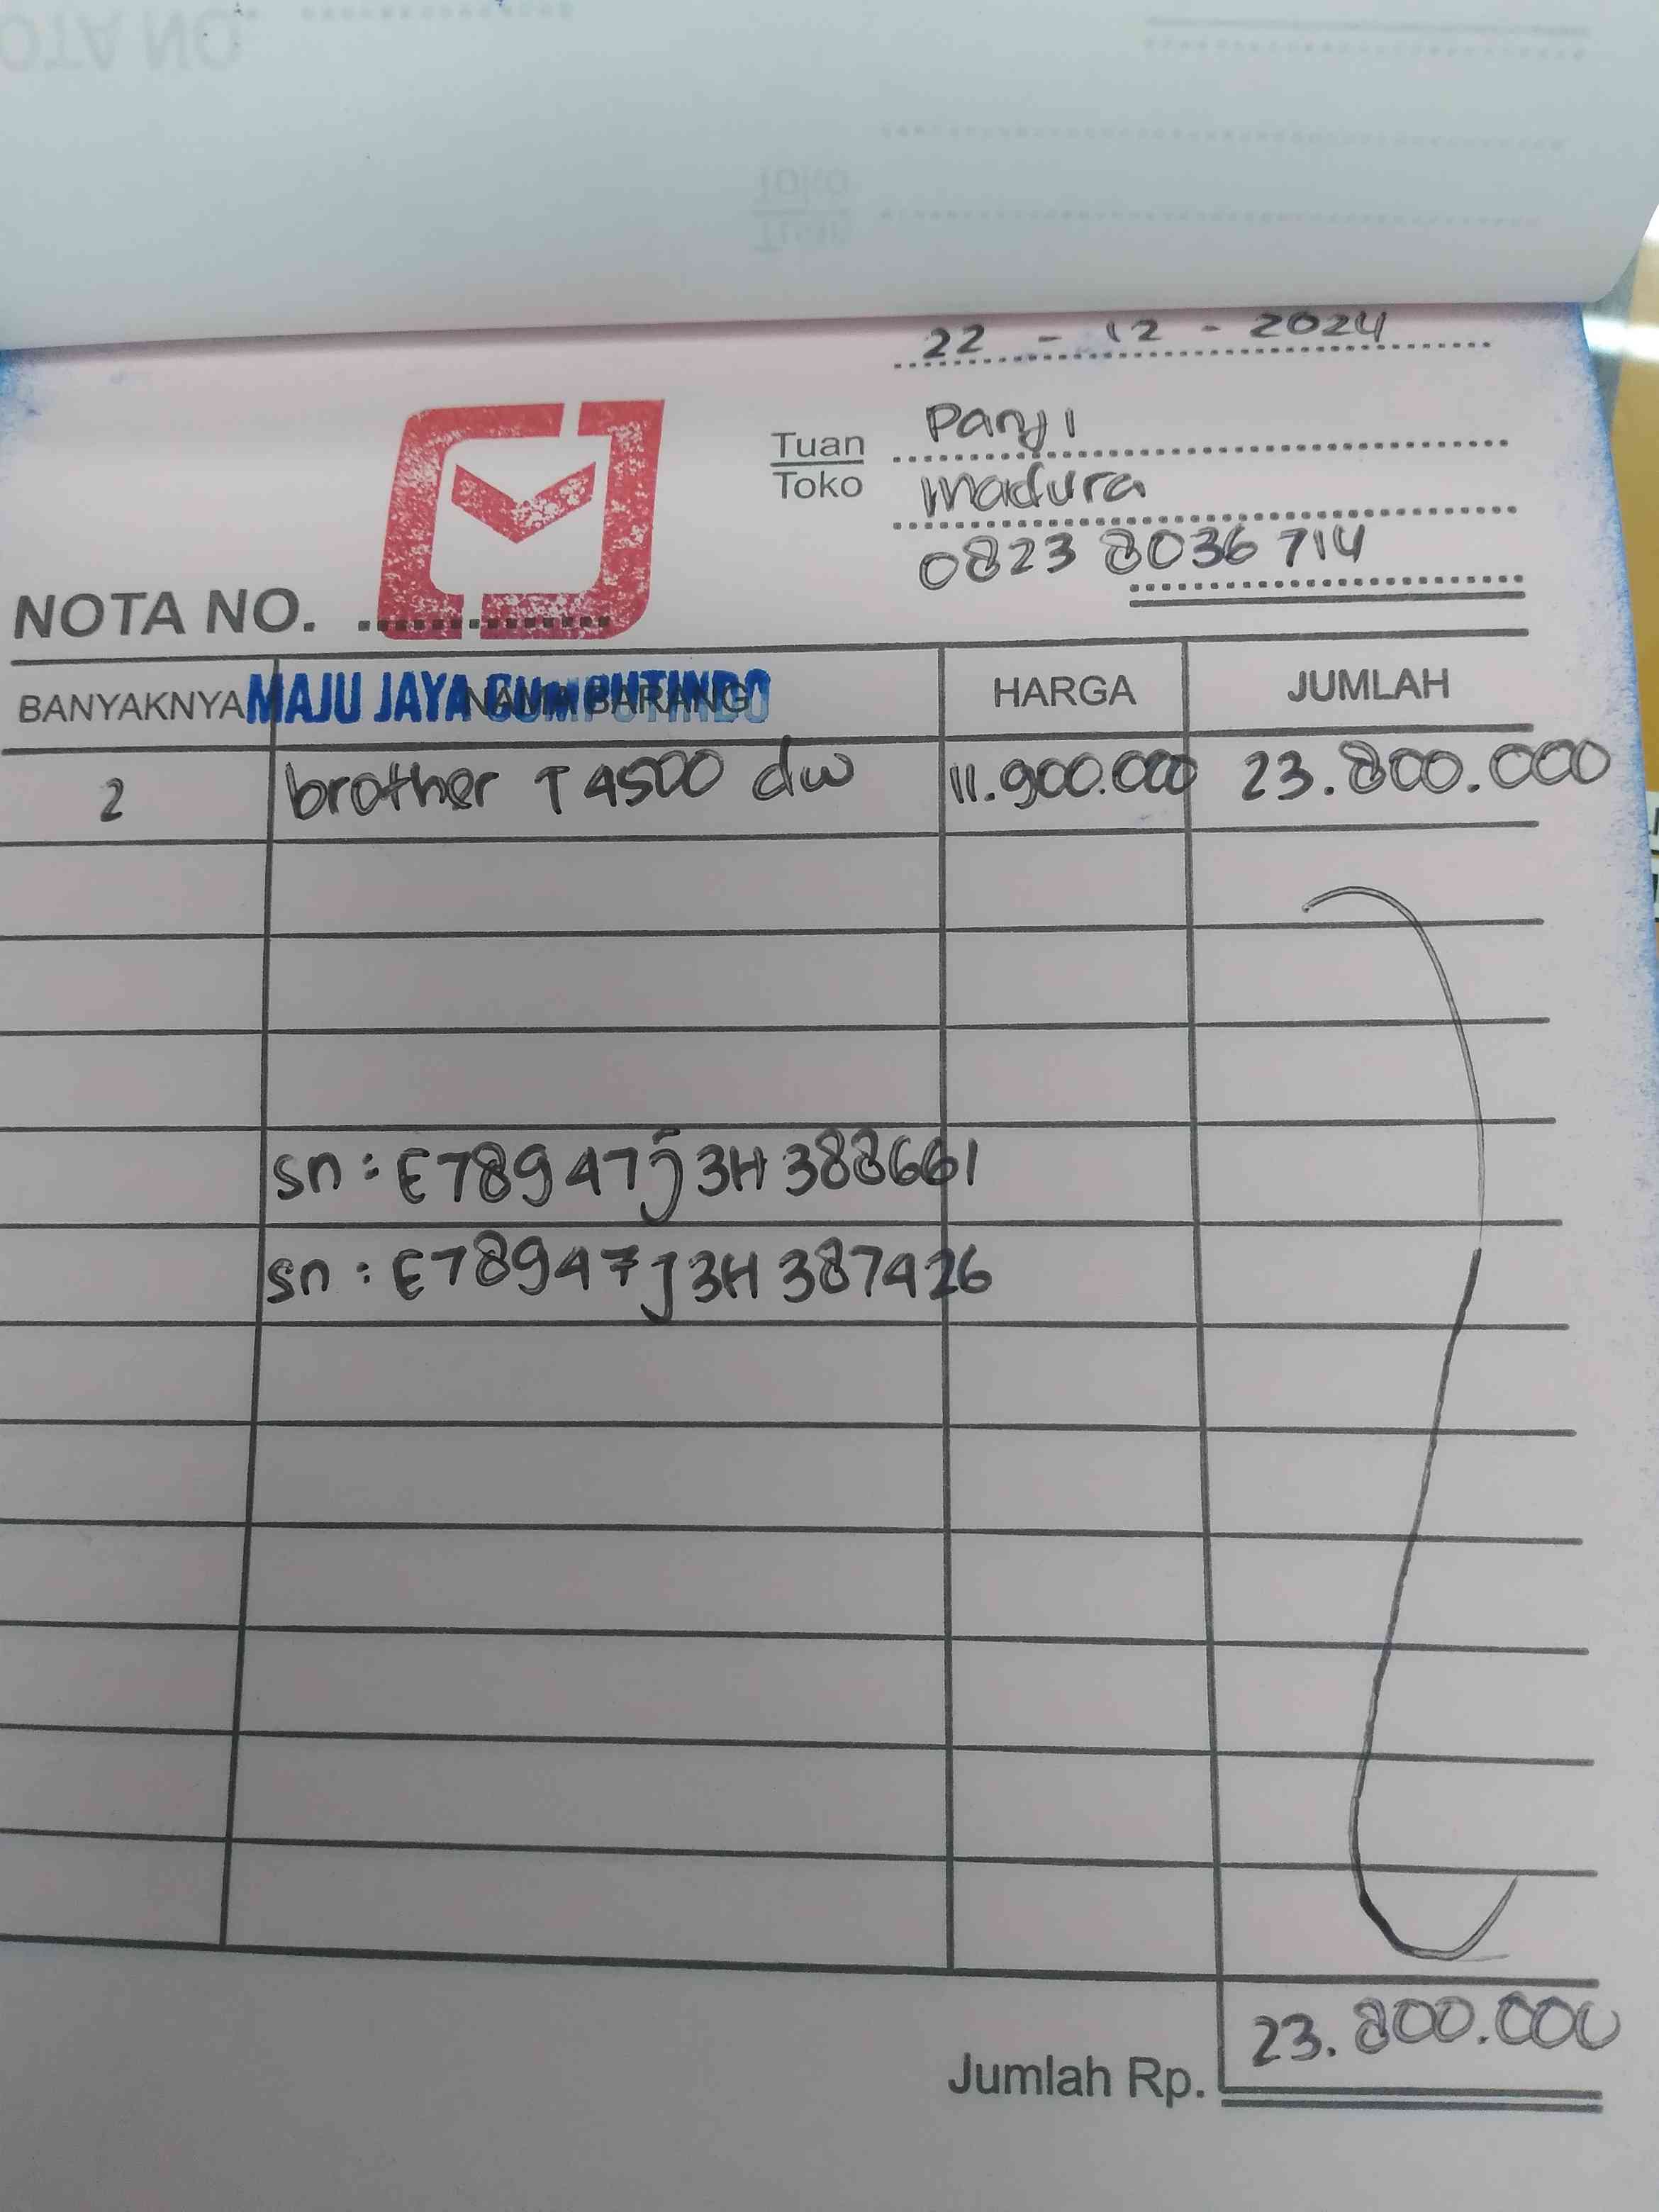 22 - 12 - 2024
Tuan
Toko
Panji
Madura
0823 8036 714
NOTA NO.
BANYAKNYA NAMA BARANG HARGA JUMLAH
MAJU JAYA COMPUTINDO
2 brother T 4500 dw 11.900.000 23.800.000
sn : E78947J3H388661
sn : E78947J3H387426
Jumlah Rp. 23.800.000